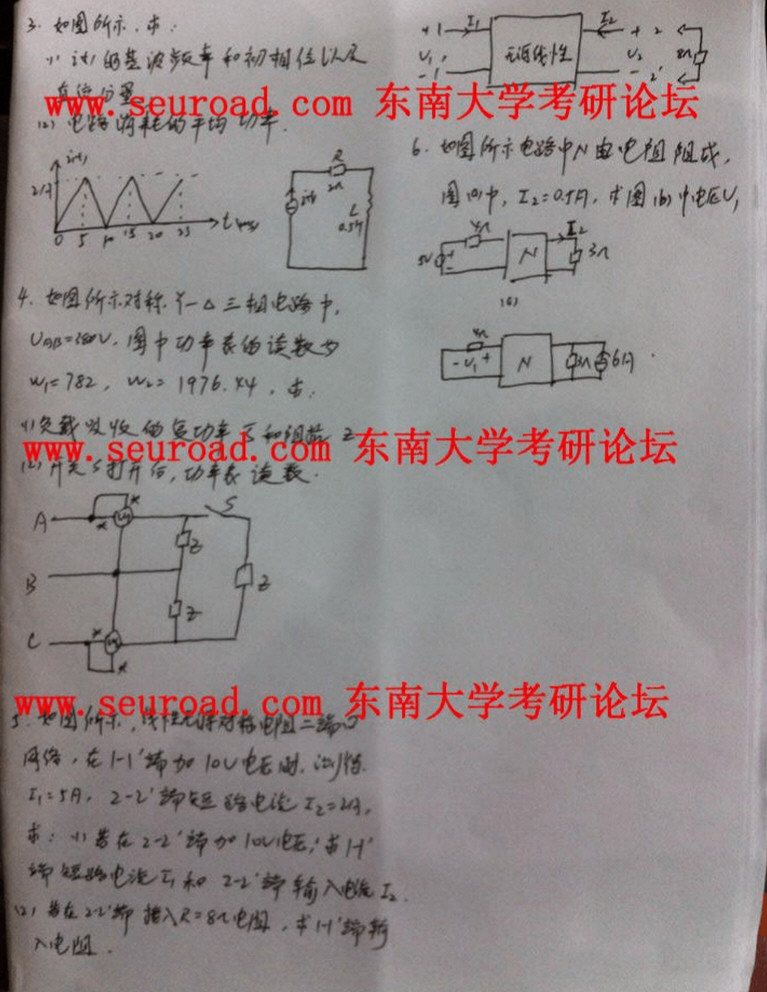 3. 如图所示,求:
(1) i(t)的基波频率和初相位以及
直流分量
(2) 电路消耗的平均功率.
i(t)
2(A)
0 5 10 15 20 25 t(ms)
R
2Ω
i(t)
L
0.5H
4. 如图所示对称Y-△三相电路中,
UAB=380V,图中功率表的读数为
W1=782, W2=1976.44,求:
(1) 负载吸收的复功率S和阻抗Z
(2) 开关S打开后,功率表读数.
A
B
C
* *
* *
W1
W2
S
Z
Z
Z
5. 如图所示,线性无源对称电阻二端口
网络,在1-1'端加10V电压时,测得
I1=5A, 2-2'端短路电流I2=2A,
求:(1) 若在2-2'端加10V电压,求1-1'
端短路电流I1和2-2'端输入电流I2.
(2) 若在2-2'端接入R=8Ω电阻,求1-1'端输
入电阻.
+ 1 I1 I2 + 2
U1 无源线性 U2 8Ω
- 1' - 2'
6. 如图所示电路中N由电阻组成,
图(a)中, I2=0.5A,求图(b)中电压U1
5V 4Ω N I2 3Ω
(a)
4Ω
- U1 + N 3Ω 6A
www.seuroad.com 东南大学考研论坛
www.seuroad.com 东南大学考研论坛
www.seuroad.com 东南大学考研论坛